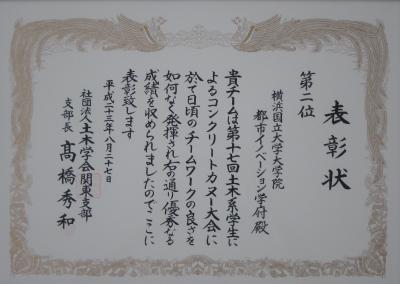 表彰状
第二位
横浜国立大学大学院
都市イノベーション学府殿
貴チームは第十七回土木系学生に
よるコンクリートカヌー大会に
於て日頃のチームワークの良さを
如何なく発揮され右の通り優秀なる
成績を収められましたのでここに
表彰致します
平成二十三年八月二十七日
社団法人土木学会関東支部
支部長 髙橋秀和